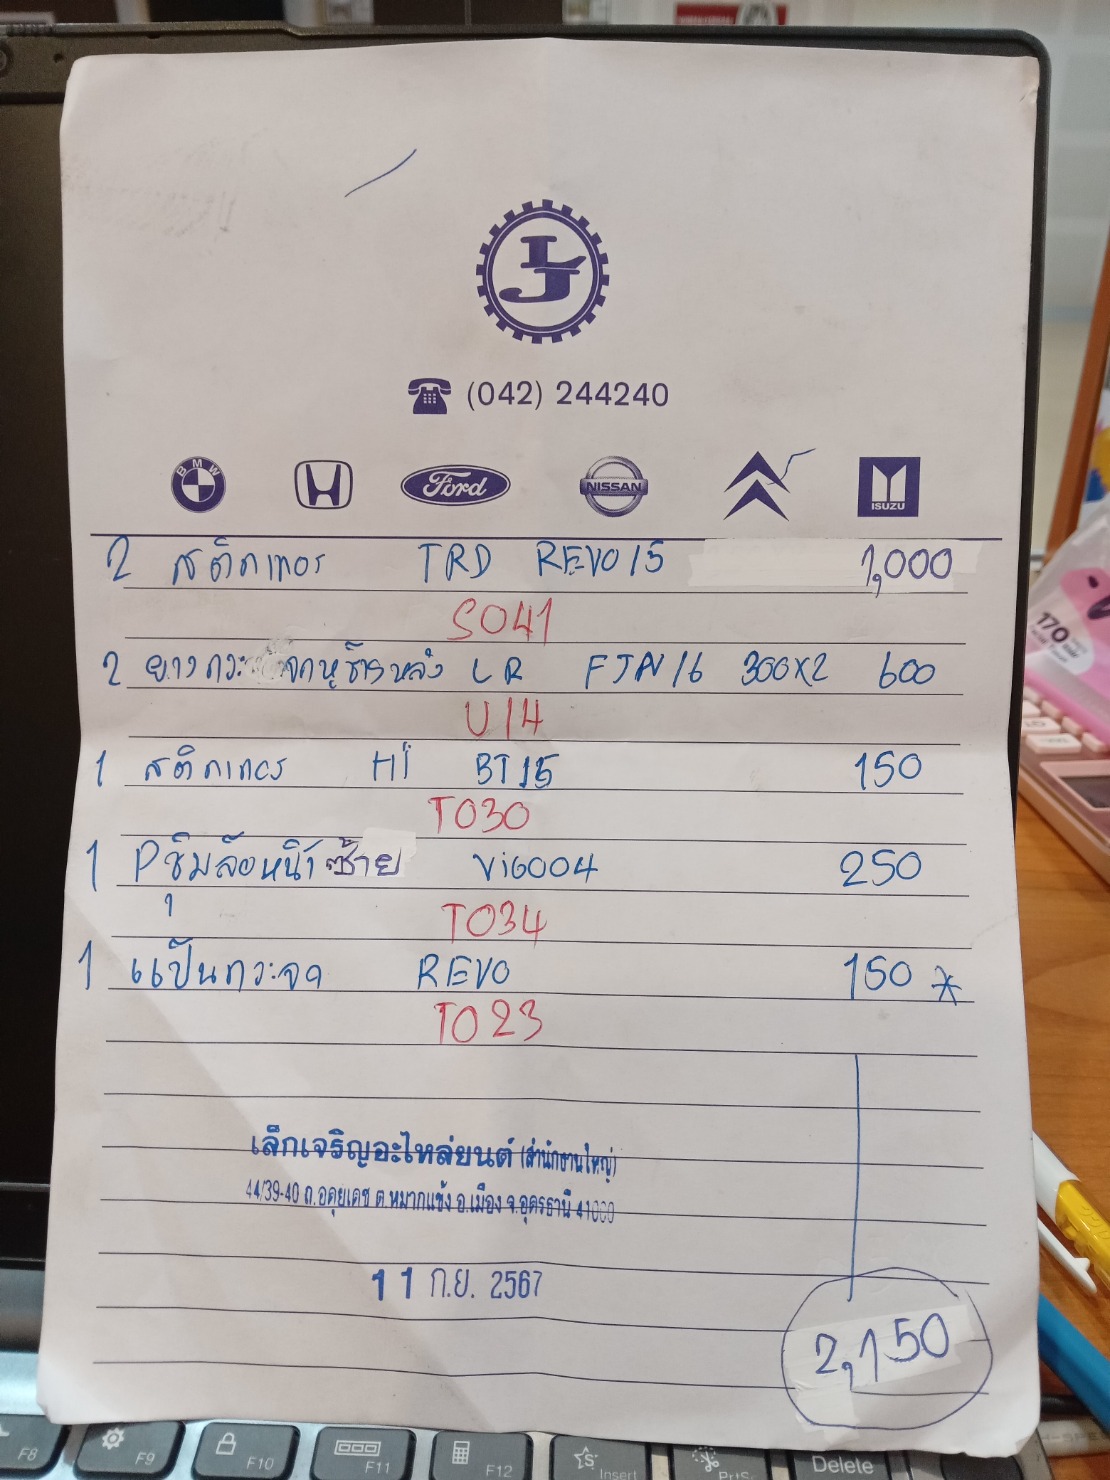 LJ
(042) 244240
BMW Ford NISSAN ISUZU
2 สติกเกอร์ TRD REVO15 1,000
S041
2 ยางกระจกหูช้างหลัง LR FTN16 300X2 600
U14
1 สติกเกอร์ Hi BT15 150
T030
1 Pซุ้มล้อหน้าซ้าย Vigo04 250
T034
1 แป้นกระจก REVO 150 *
T023
เล็กเจริญอะไหล่ยนต์ (สำนักงานใหญ่)
44/39-40 ถ.อดุยเดช ต.หมากแข้ง อ.เมือง จ.อุดรธานี 41000
11 ก.ย. 2567
2,150
170
F8 F9 F10 F11 F12 Insert PrtSc Delete